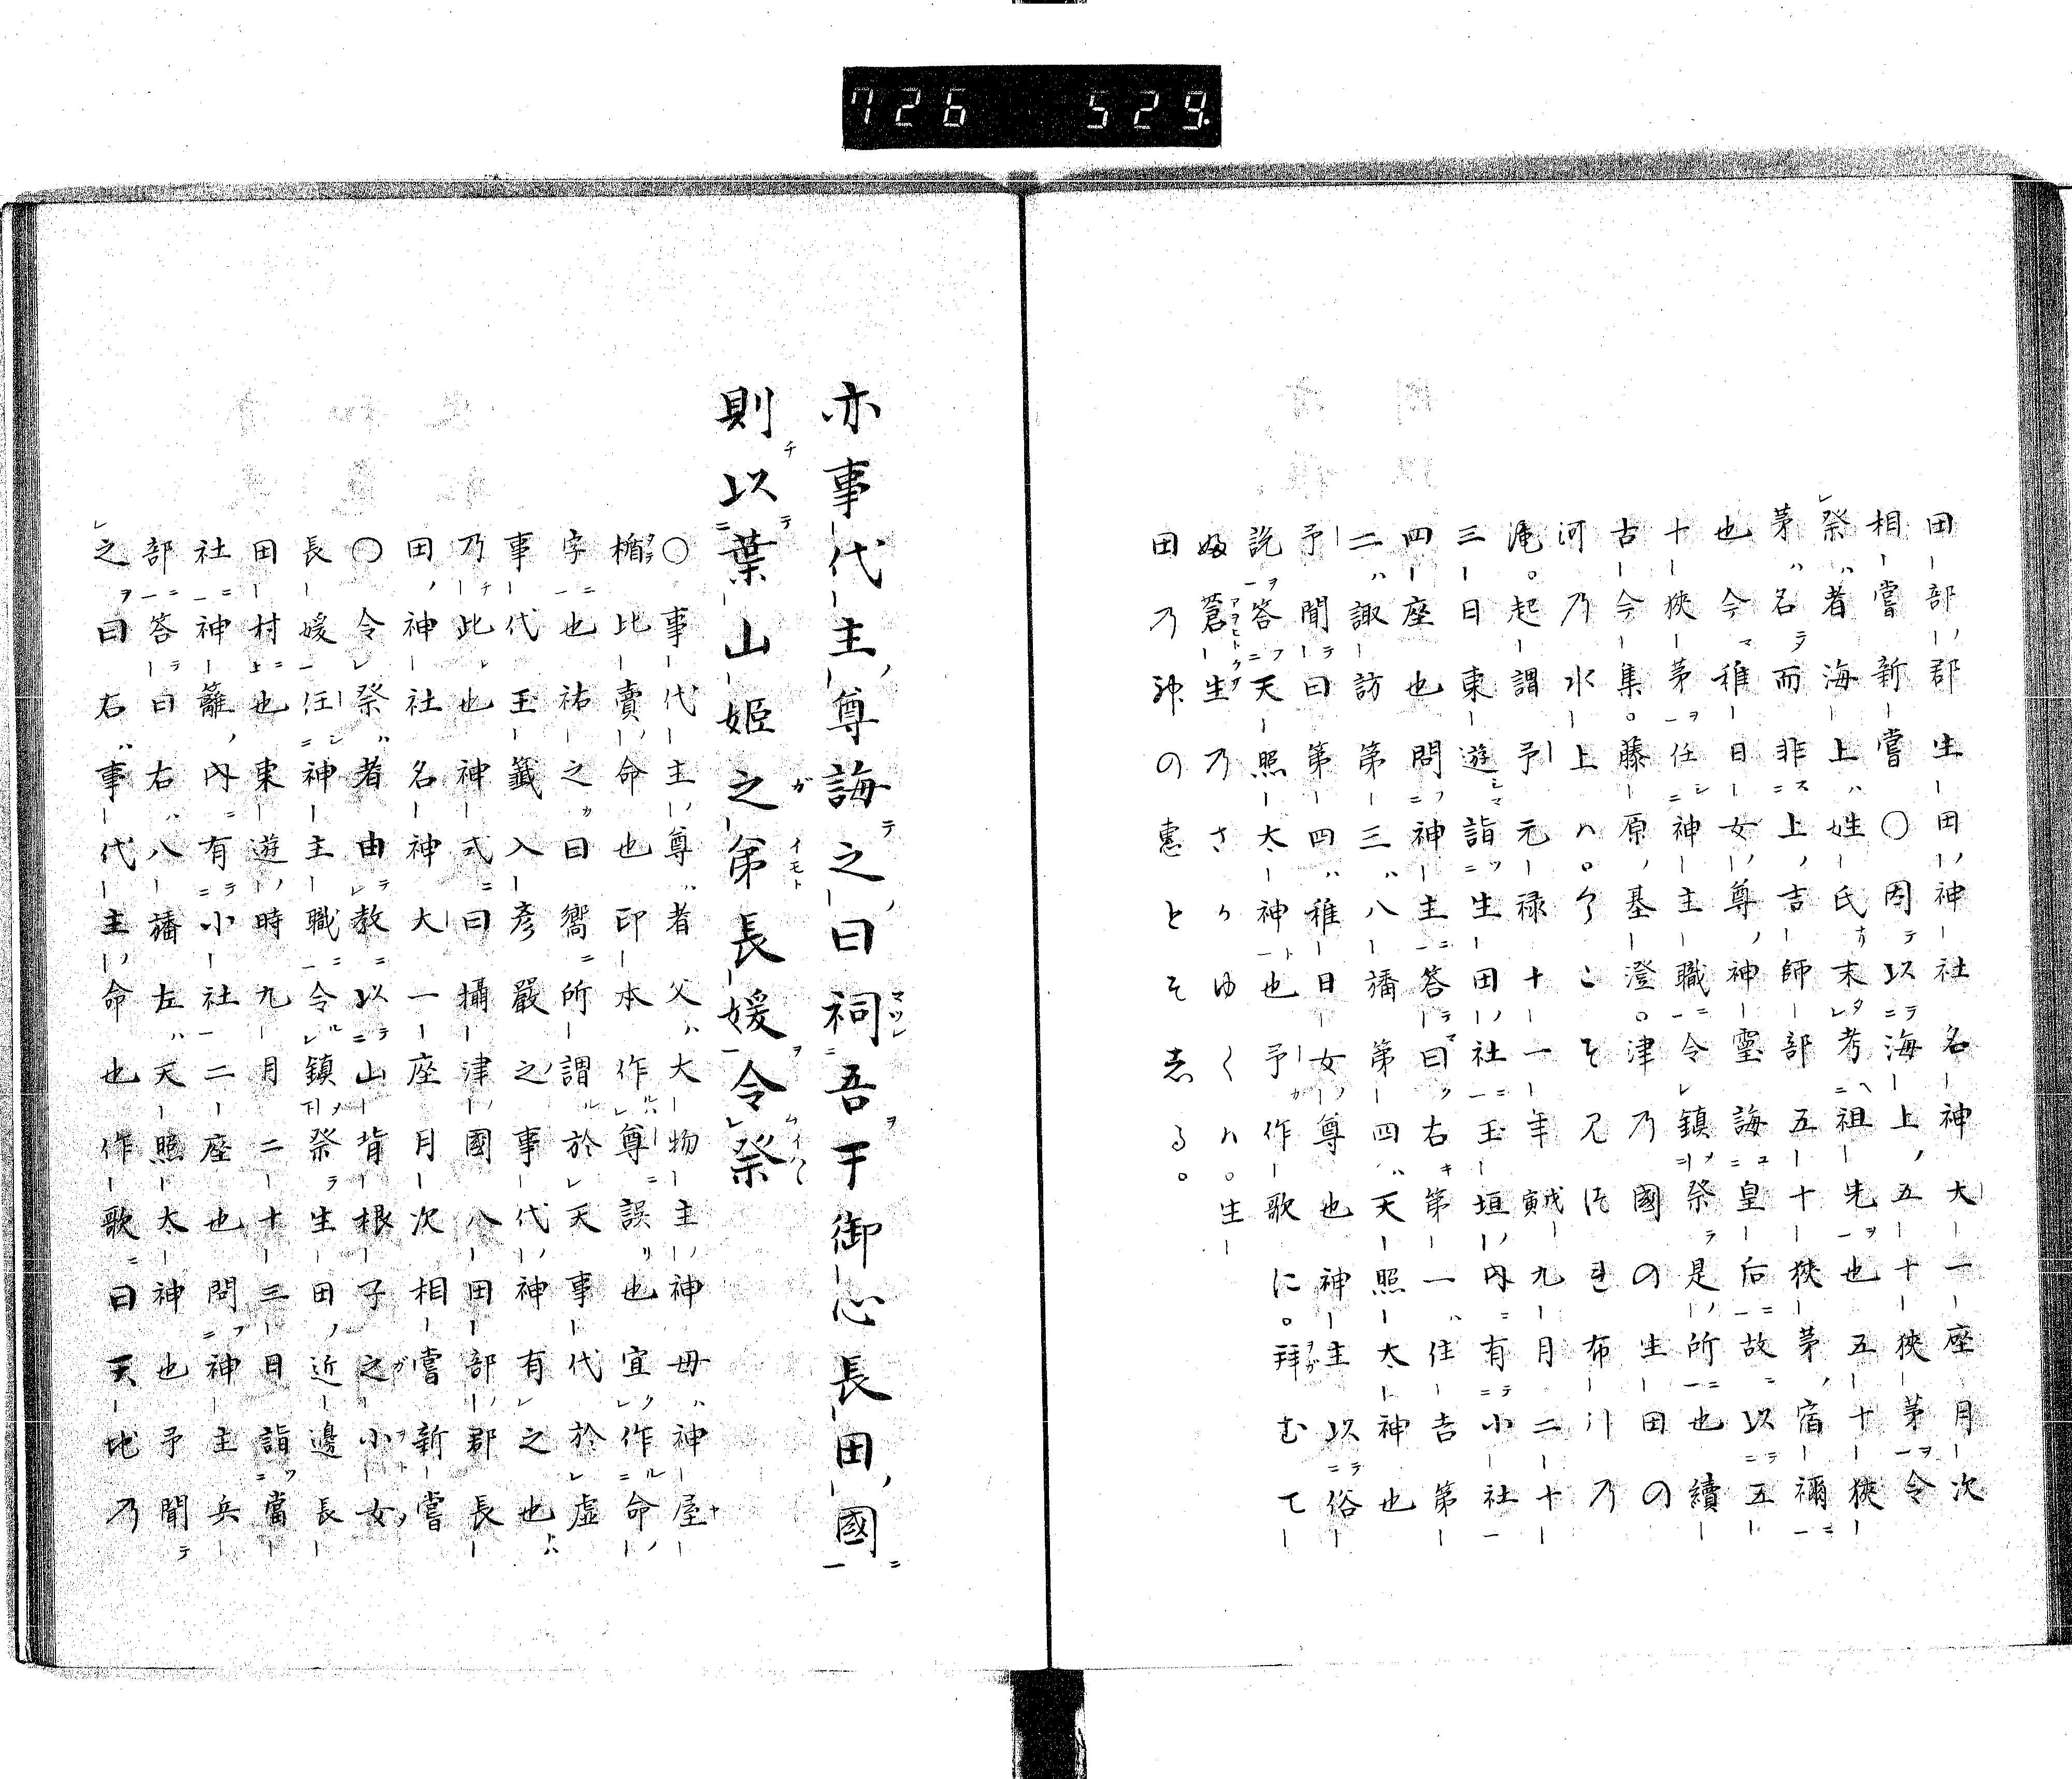 726 529
田部郡生田神社名神大一座月次
相嘗新嘗〇因以海上五十狹茅令
祭者海上姓氏末考祖先也五十狹
茅名而非上吉師部五十狹茅宿禰
也今稚日女尊神靈誨皇后故以五
十狹茅任神主職令鎮祭是所也續
古今集。藤原基澄。津乃國の生田の
河乃水上ハ。
滝。起謂予元禄十一年戊寅九月二十
三日東遊詣生田社玉垣内有小社
四座也問神主答曰右第一住吉第
二諏訪第三八幡第四天照太神也
予聞曰第四稚日女尊也神主以俗
説答天照太神也予作歌に。拜むて
蒼生乃さかゆくハ。生
田乃神の惠とそ志る。
亦事代主尊誨之曰祠吾于御心長田國
則以葉山姫之弟長媛令祭
〇事代主尊者父大物主神母神屋
楯比賣命也印本作尊誤也宜作命
字也祐之曰嚮所謂於天事代於虚
事代玉籤入彦嚴之事代神有之也
乃此也神式曰攝津國八田部郡長
田神社名神大一座月次相嘗新嘗
〇令祭者由教以山背根子之小女
長媛任神主職令鎮祭生田近邊長
田村也東遊時九月二十三日詣當
社神籬内有小社二座也問神主兵
部答曰右八幡左天照太神也予聞
之曰右事代主命也作歌曰天地乃